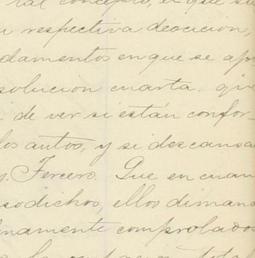 tal concepto, el que su
respectiva decisión,
damentos en que se apo
solucion cuarta. que
de ver si están confor-
los autos, y si descansa
Tercero. Que en cuan
sodichos, ellos dimana
namente comprobados